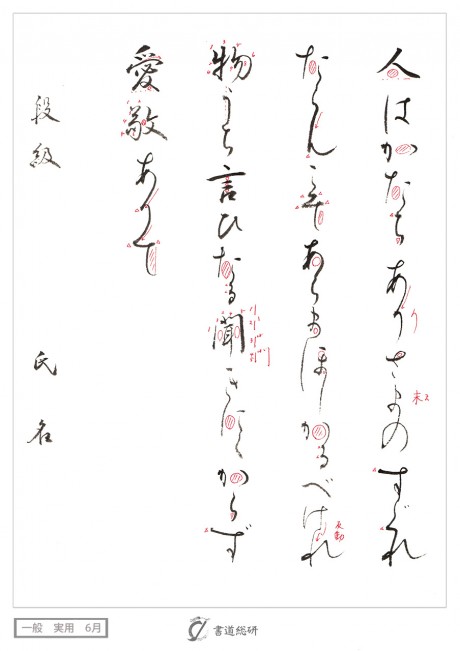 人はかたちありさまのすぐれ
たらんこそあらまほしかるべけれ
物うち言ひたる聞きにくからず
愛敬ありて
段級　氏名
り
反動
一般　実用　6月
書道総研